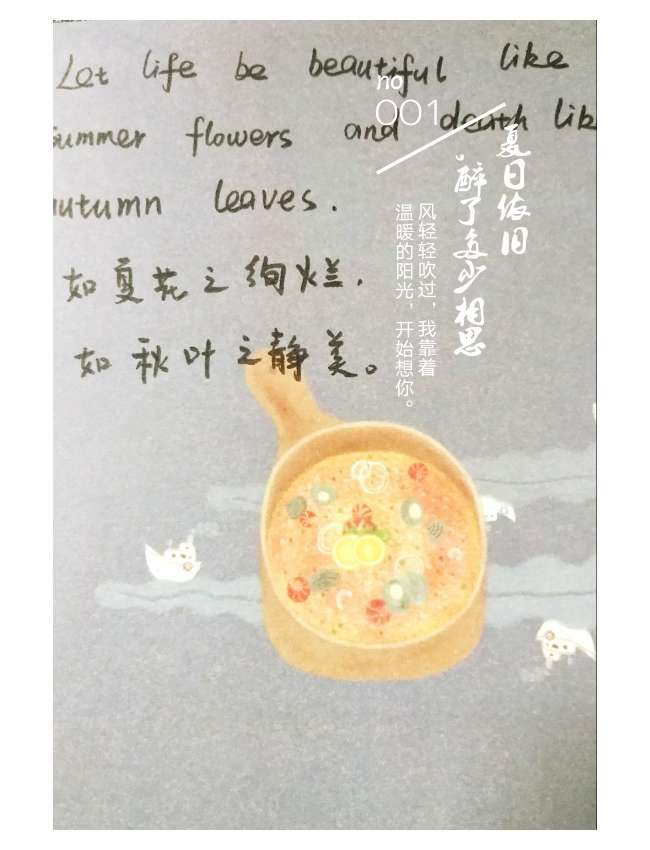 Let life be beautiful like
summer flowers and death like
autumn leaves.
如夏花之绚烂.
如秋叶之静美。
no
001
夏日依旧
醉了多少相思
风轻轻吹过，我靠着
温暖的阳光，开始想你。